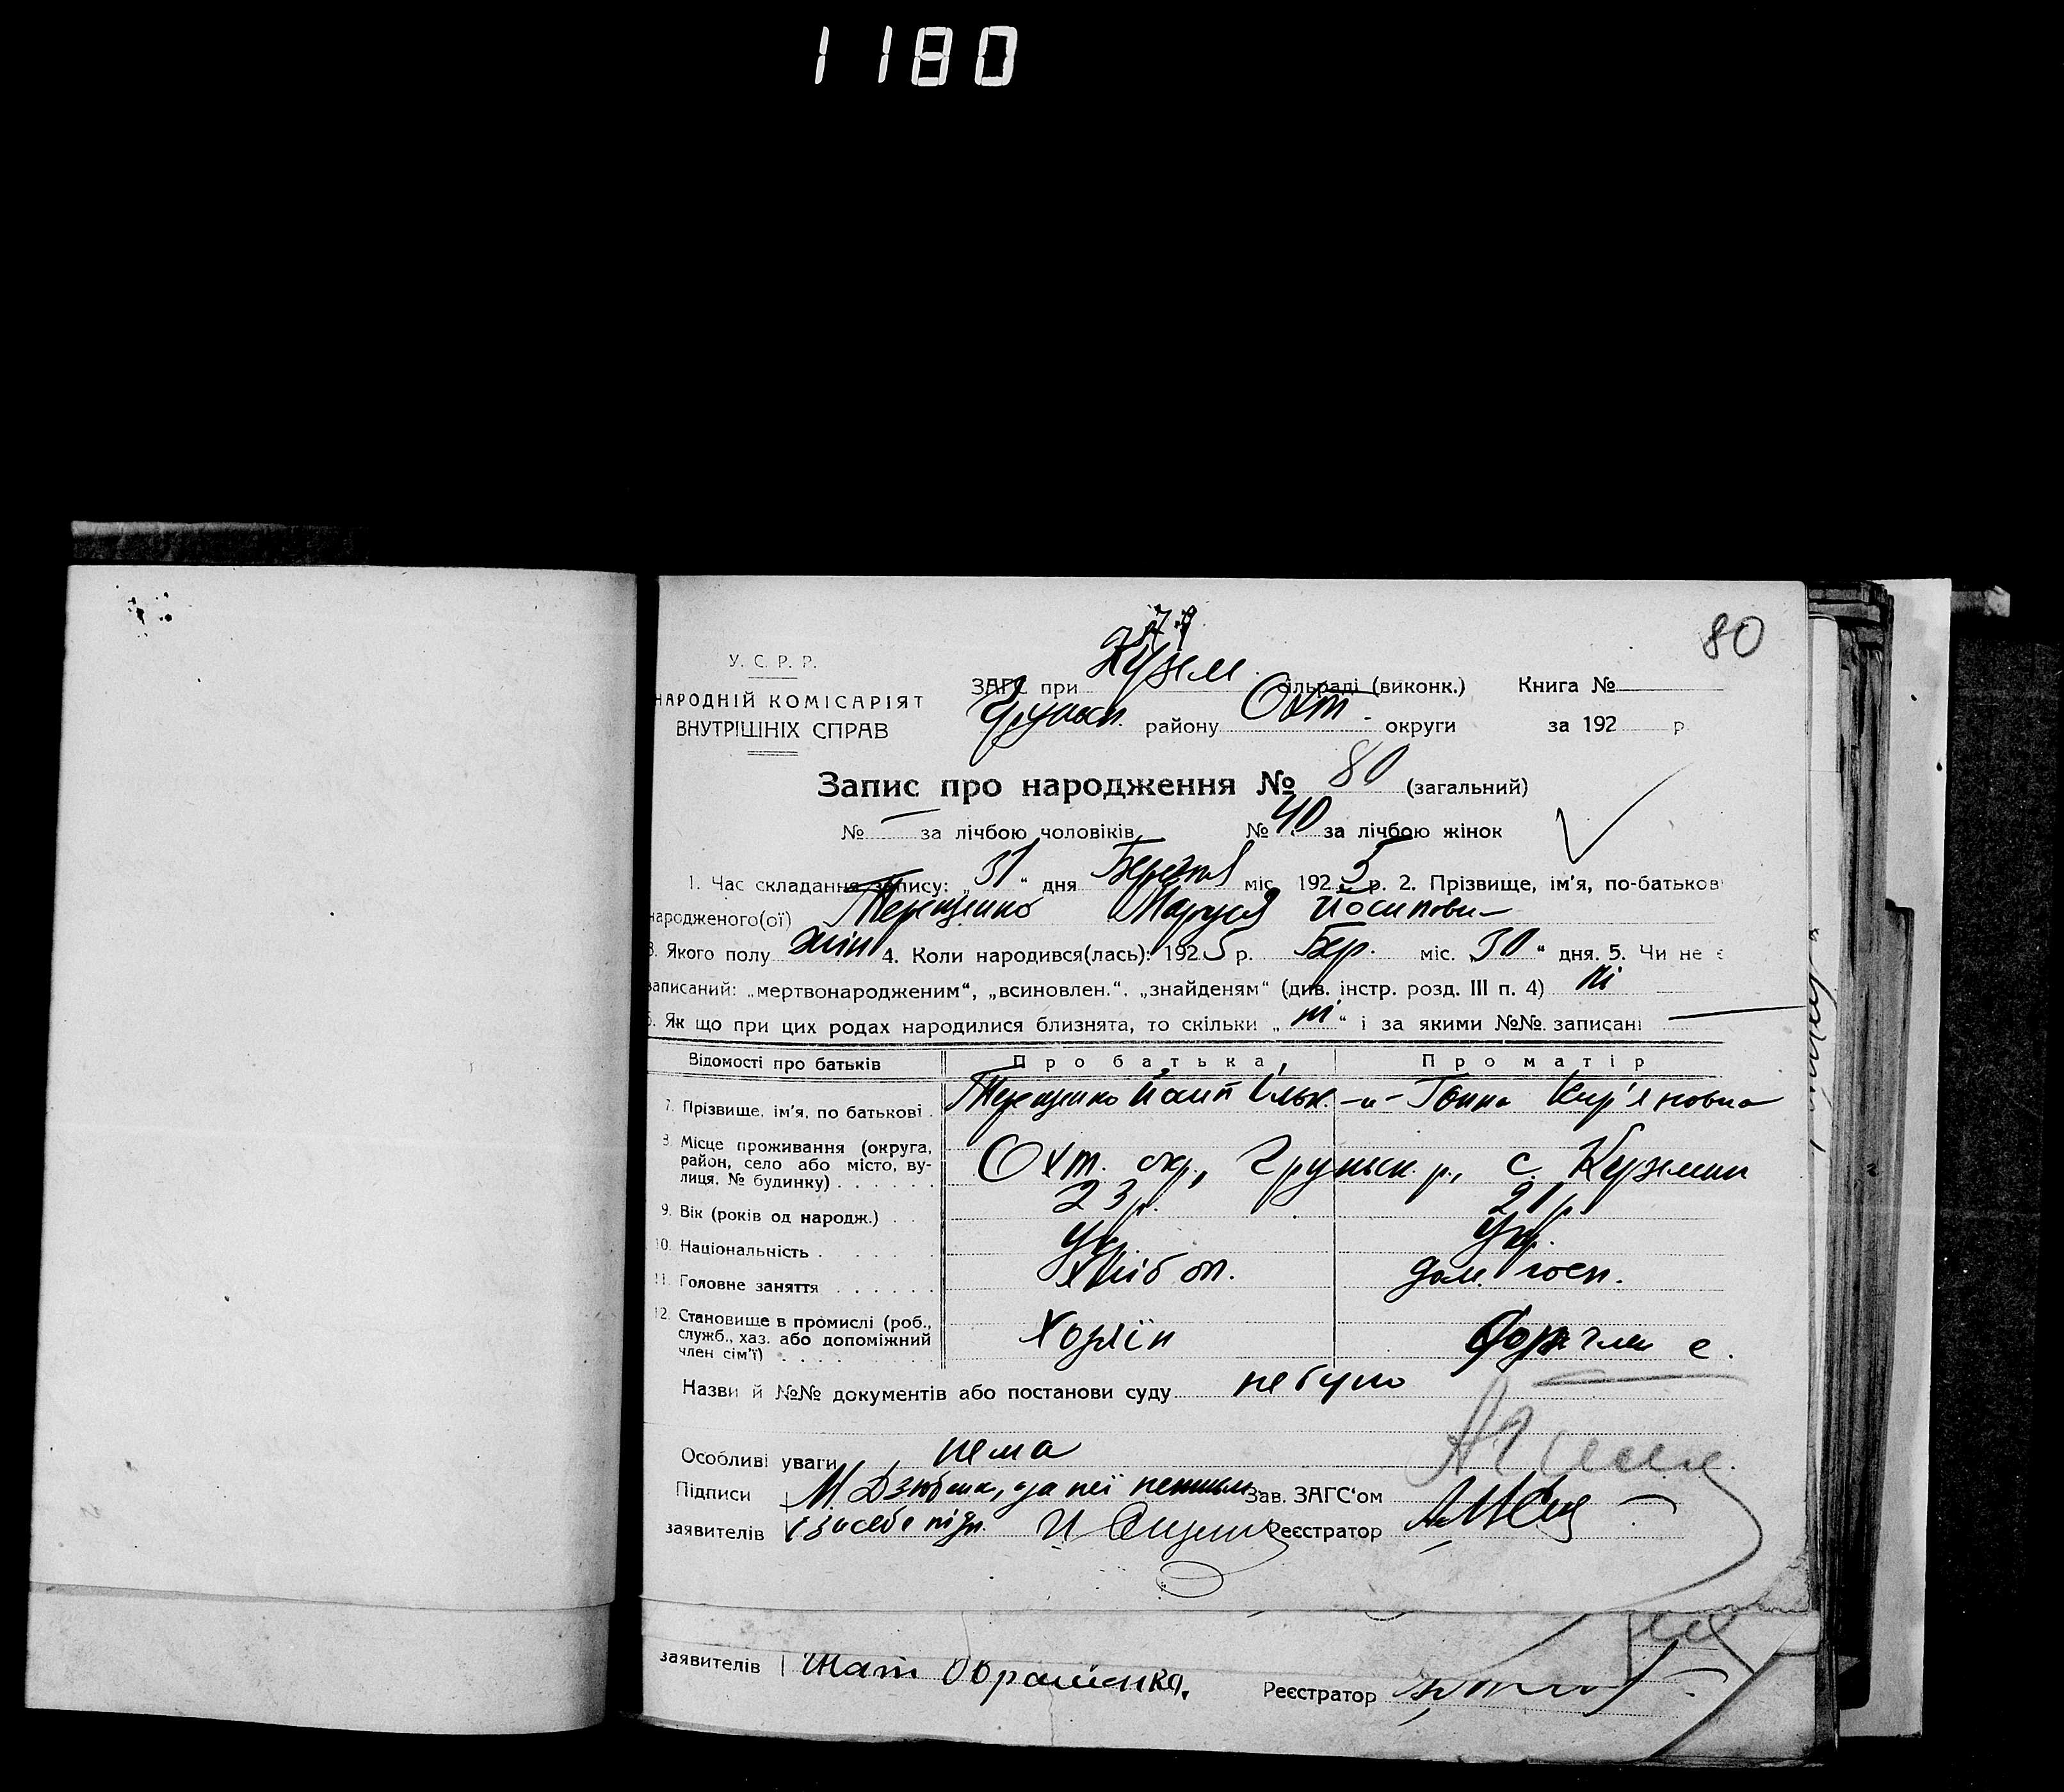 1180
80
У. С. Р. Р.
НАРОДНІЙ КОМІСАРІЯТ
ВНУТРІШНІХ СПРАВ
ЗАГС при Кужем. сільраді (виконк.) Книга №
Груньск. району Охт. округи за 192 р
Запис про народження № 80 (загальний)
№ — за лічбою чоловіків № 40 за лічбою жінок
1. Час складання запису: „31“ дня Березня міс. 1925 р. 2. Прізвище, ім'я, по-батькові
народженого(ої) Терещенко Маруся Йосиповн
3. Якого полу жін 4. Коли народився(лась): 1925 р. Бер. міс. „30“ дня. 5. Чи не є
записаний: „мертвонародженим“, „всиновлен.“, „знайденям“ (див. інстр. розд. III п. 4) ні
6. Як що при цих родах народилися близнята, то скільки „ні“ і за якими №№ записані —
Відомості про батьків Про батька Про матір
7. Прізвище, ім'я, по батькові . Терещенко Йосип Ільк. -"- Ганна Кир'яновна
8. Місце проживання (округа, район, село або місто, вулиця, № будинку) . . . . . . Охт. окр., Груньск. р., с. Кужемин
9. Вік (років од народж.) . . 23 р. 21 р.
10. Національність . . . . . . Укр. Укр.
11. Головне заняття . . . . . . Хліб оп. дом. госп.
12. Становище в промислі (роб., служб., хаз. або допоміжний член сім'ї) . . . . . . . Хозяїн член с.
Назви й №№ документів або постанови суду не було
Особливі уваги нема
Підписи М. Дзюбана, за неї неписьм. Зав. ЗАГС'ом
заявителів і за себе підп. Реєстратор
заявителів Реєстратор